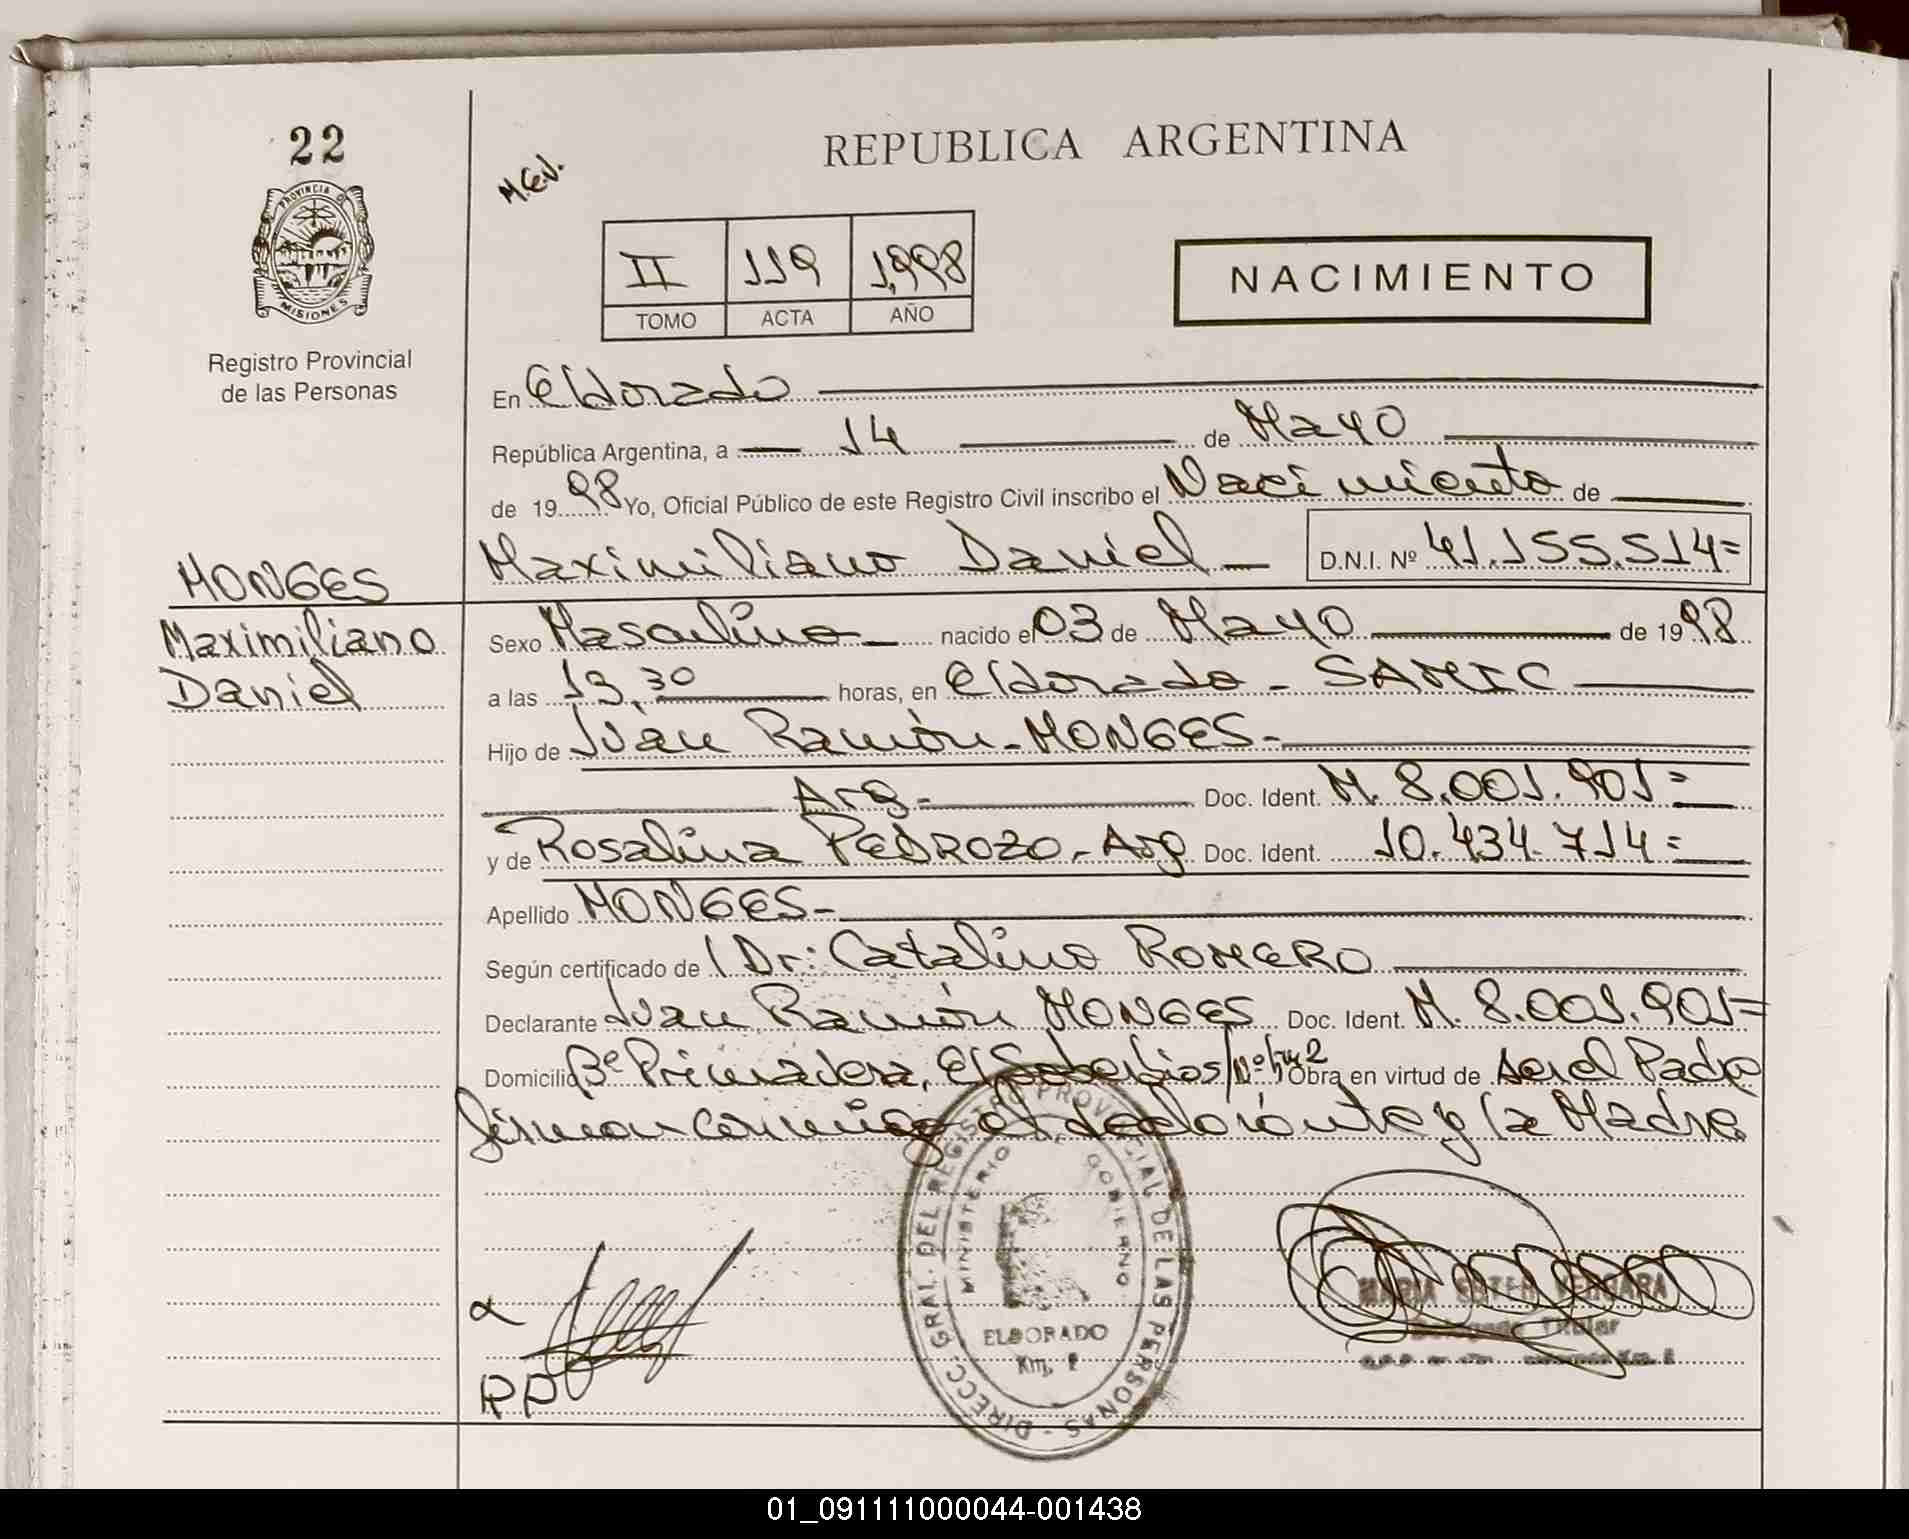 22
PROVINCIA DE
MISIONES
Registro Provincial
de las Personas
MONGES
Maximiliano
Daniel
M.E.V.
REPUBLICA ARGENTINA
II 119 1.998
TOMO ACTA AÑO
NACIMIENTO
En Eldorado
República Argentina, a 14 de Mayo
de 1998 Yo, Oficial Público de este Registro Civil inscribo el Nacimiento de
Maximiliano Daniel D.N.I. Nº 41.155.514=
Sexo Masculino nacido el 03 de Mayo de 1998
a las 19,30 horas, en Eldorado - SAMIC
Hijo de Juan Ramón MONGES
Arg. Doc. Ident. M. 8.001.901=
y de Rosalina PEDROZO - Arg Doc. Ident. 10.434.714=
Apellido MONGES
Según certificado de Dr: Catalino ROMERO
Declarante Juan Ramón MONGES Doc. Ident. M. 8.001.901=
Domicilio Bº Primadera, El Soberbio s/nº Obra en virtud de ser el Padre
firman conmigo el declarante y la Madre
DIRECC. GRAL. DEL REGISTRO PROVINCIAL DE LAS PERSONAS
MINISTERIO DE GOBIERNO
ELDORADO
Km.
MARIA ESTER VERGARA
Delegada Titular
RP
01_091111000044-001438